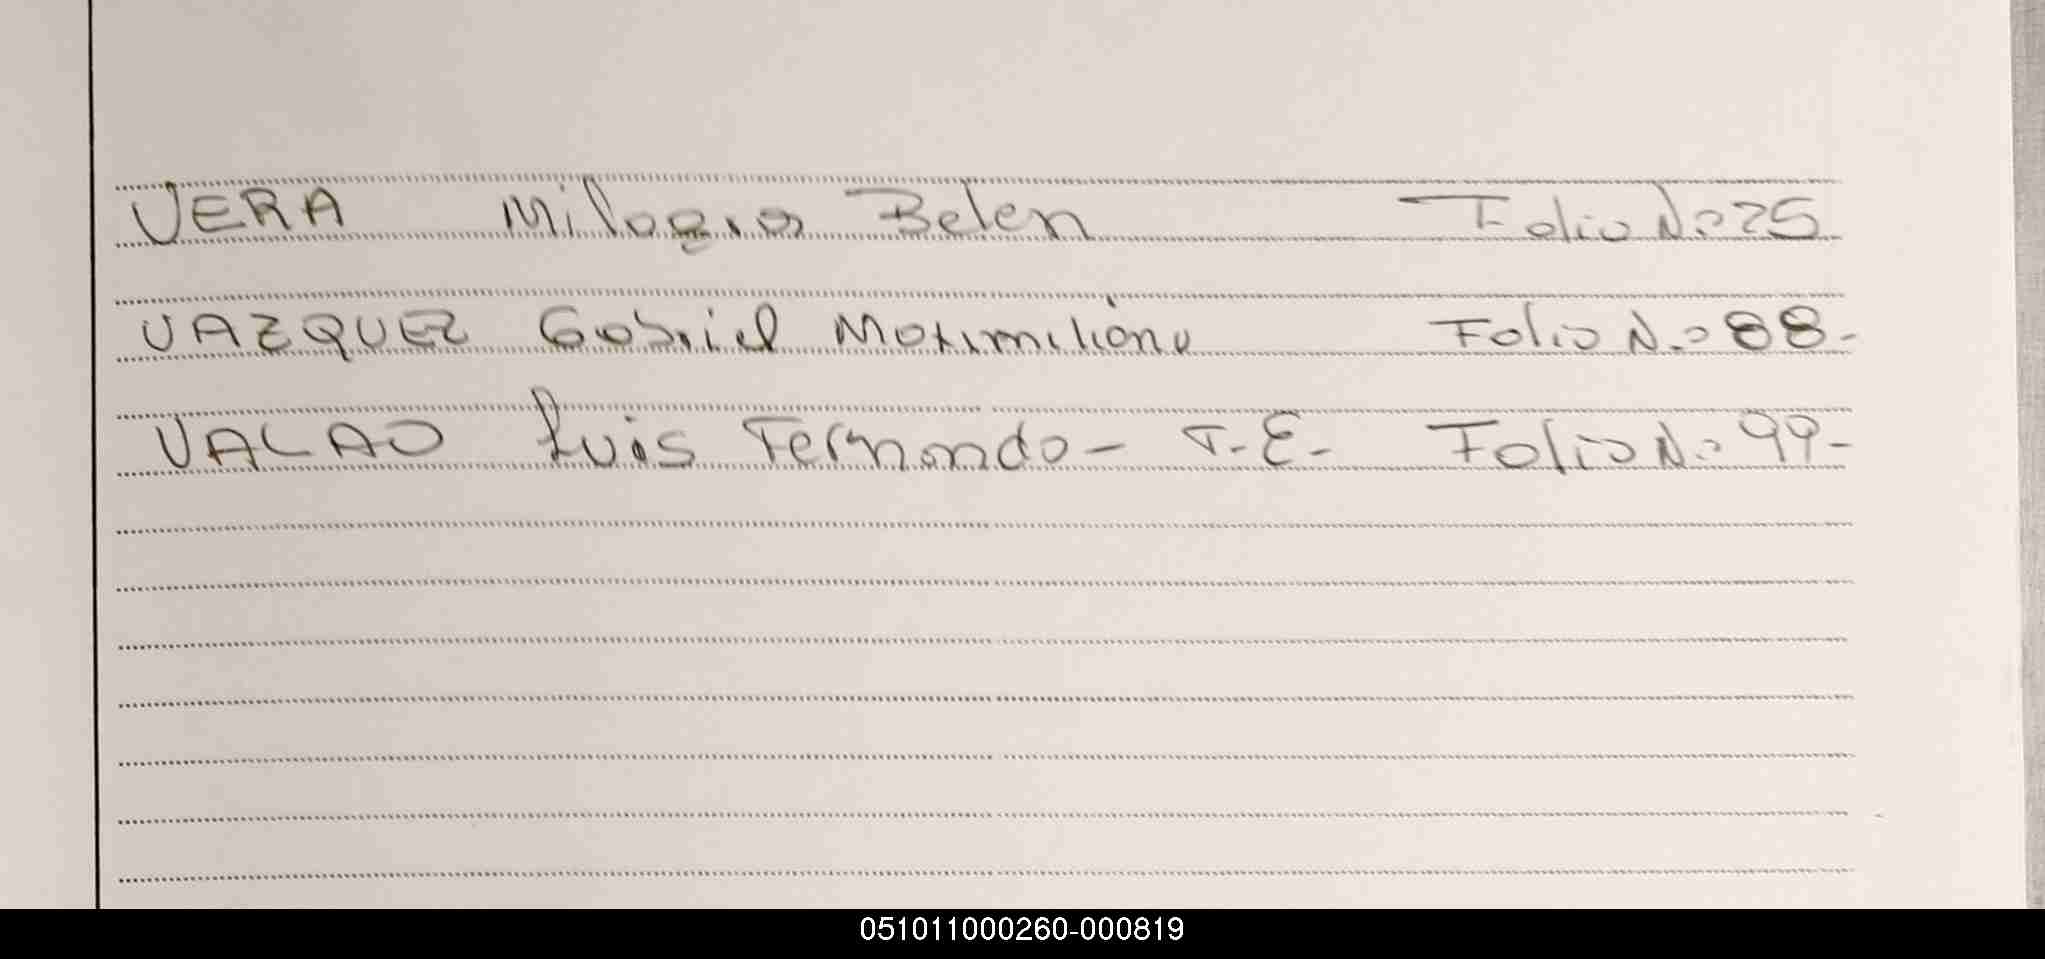 VERA Milagros Belen Folio No 25
VAZQUEZ Gabriel Maximiliano Folio No 88-
VALAO Luis Fernando - T.E- Folio No 99-
051011000260-000819